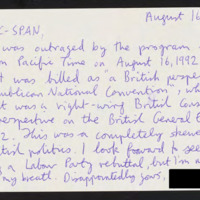 August 16
C-SPAN,
was outraged by the program
m Pacific Time on August 16, 1992
t was billed as "a British perspe
publican National Convention", wh
t was a right-wing British Cons
erspective on the British General E
2. This was a completely skewe
itish politics. I look forward to see
g a Labour Party rebuttal, but I'm n
my breath. Disappointedly yours,